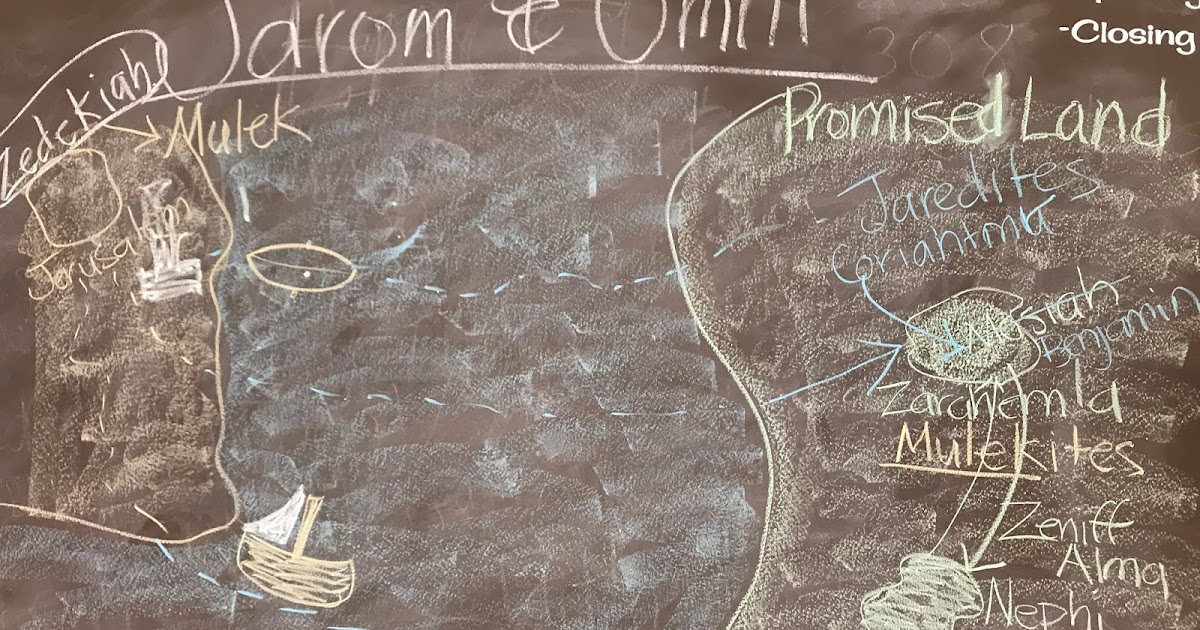 Jarom & Omni
308
-Closing
Zedekiah
Mulek
Promised Land
Jerusalem
Jaredites
Coriantma
Mosiah
Benjamin
Zarahemla
Mulekites
Zeniff
Alma
Nephi